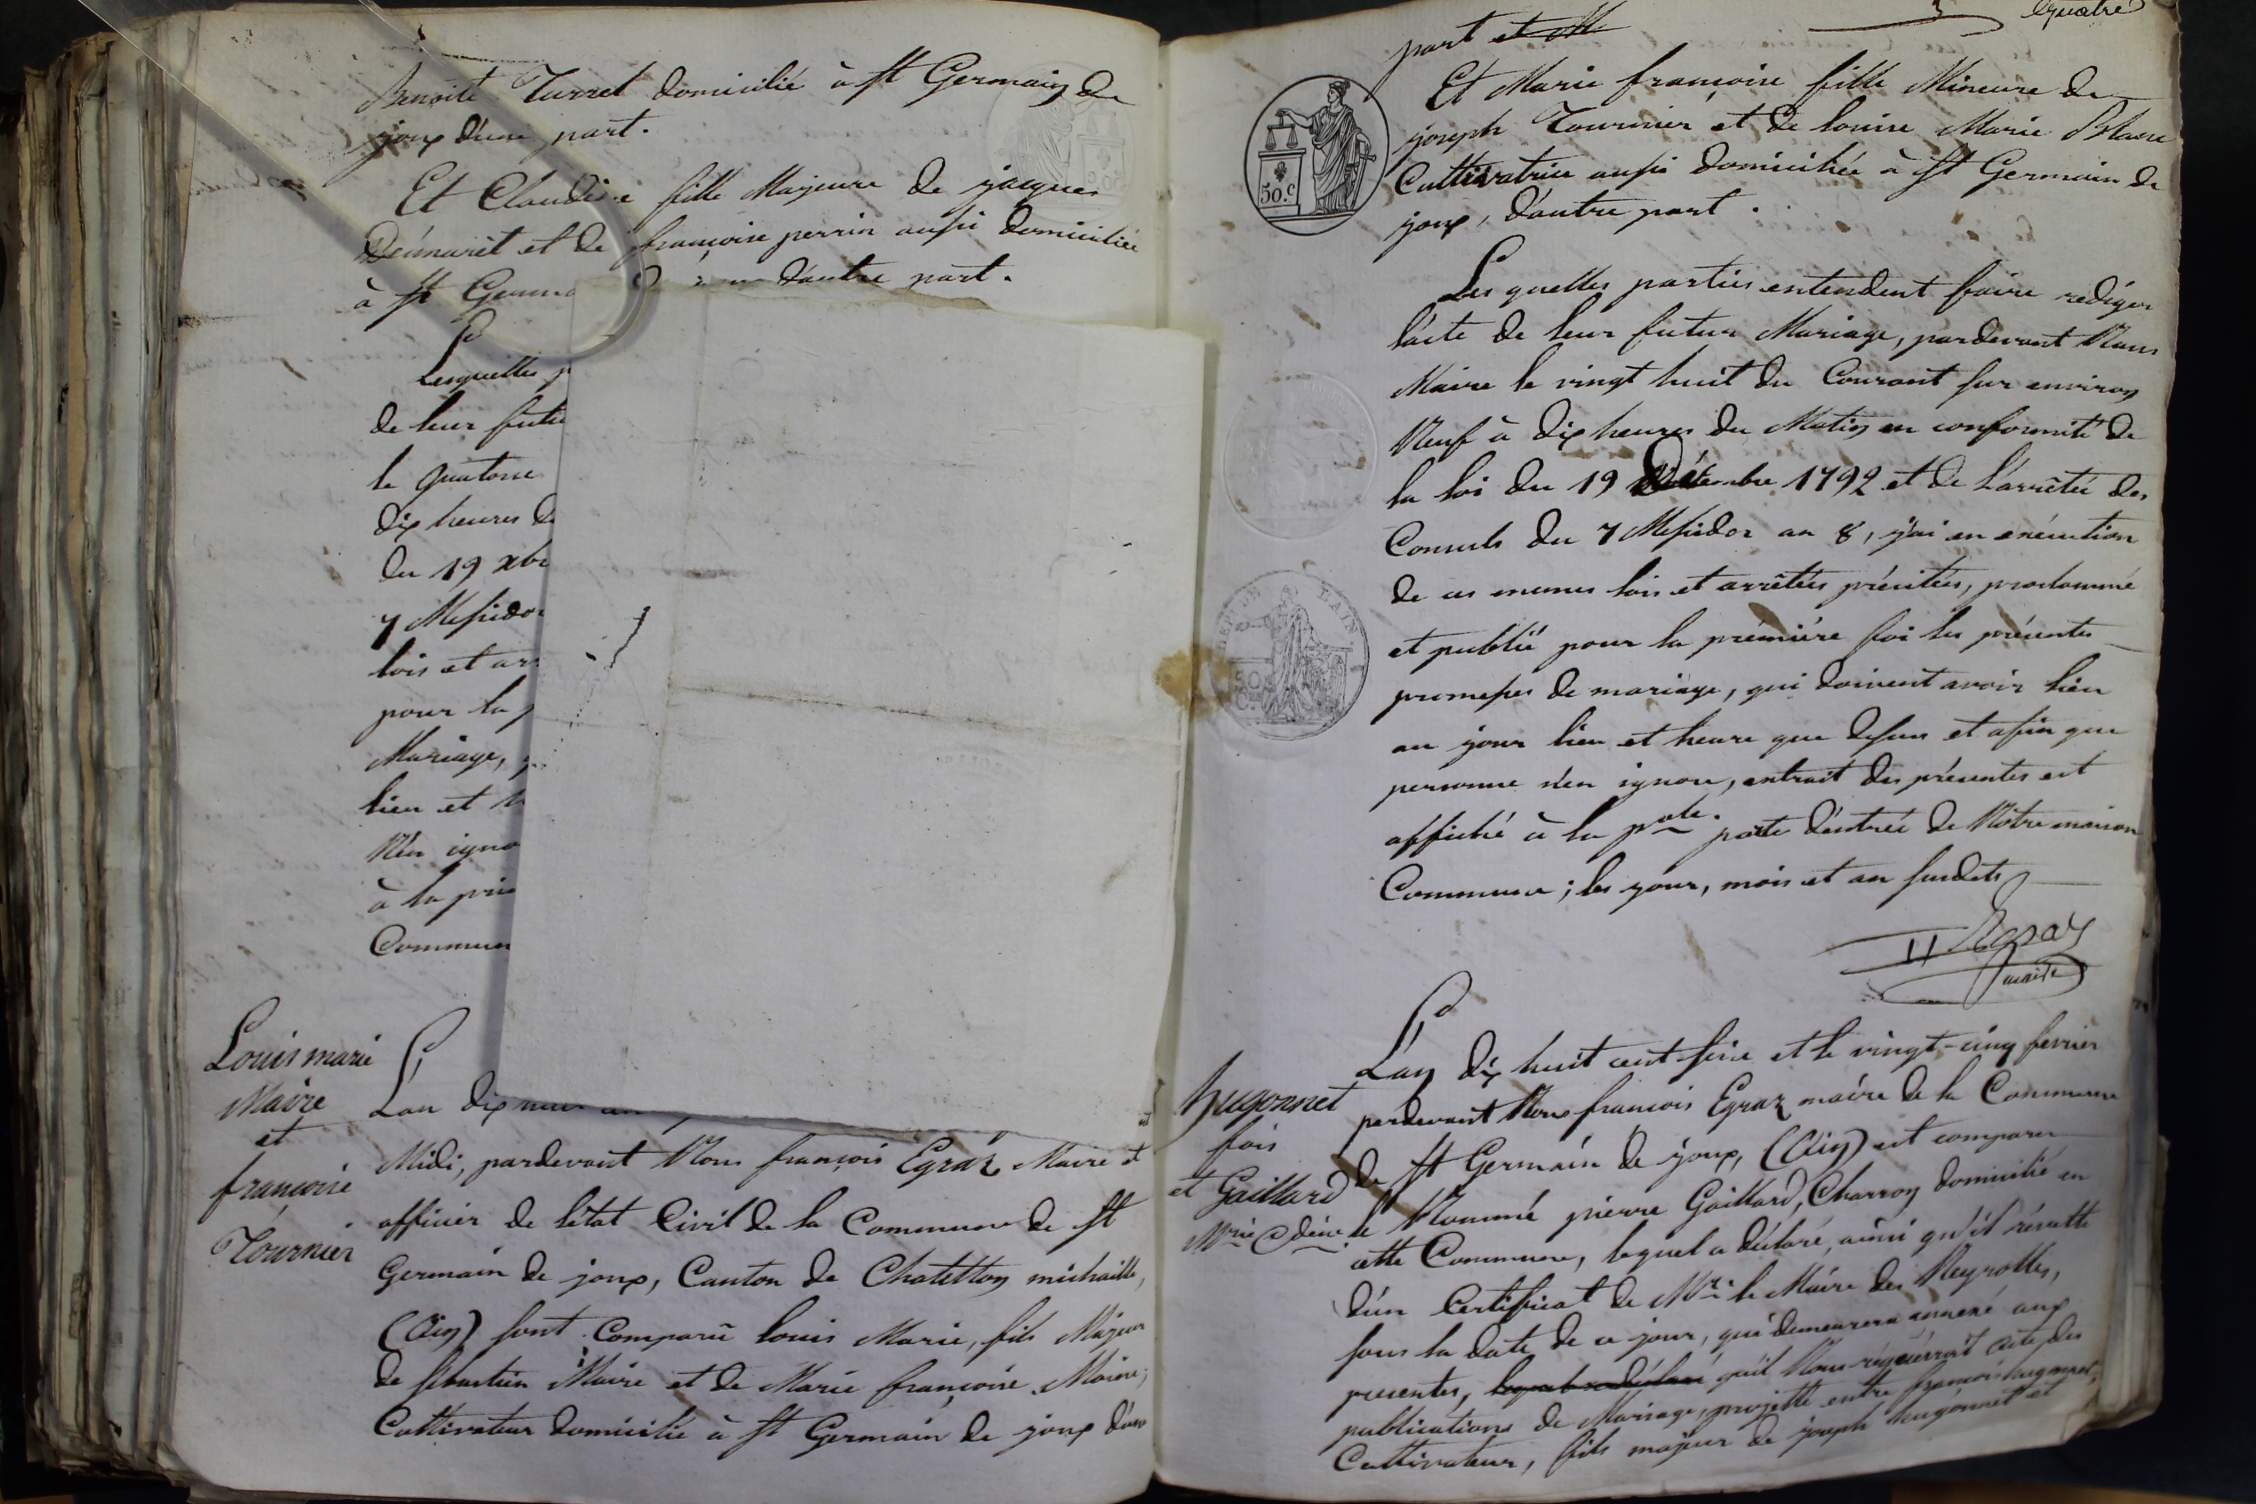 Benoite Turret domicilié à St Germain de
joux d'une part.
Et Claudine fille Majeure de jacques
et de françoise perrin aussi domiciliée
à St Germa d'autre part.
Lesquelles p
de leur futu
le quatorze
dix heures d
du 19 xbr
7 Messidor
lois et arr
pour la p
Mariage,
lieu et h
N'en igno
à la prin
Commun
Louis marie
Maire
et
françoise
Tournier
L'an dix
Midi, pardevant Nous françois Egraz Maire et
officier de l'état Civil de la Commune de St
Germain de joux, Canton de Chatillon michaille,
(Ain) sont Comparû louis Marie, fils Majeur
de sébastien Maire et de Marie françoise Moine,
Cultivateur domicilié à St Germain de joux d'une
quatre
part et M
Et Marie françoise fille Mineure de
joseph Tournier et de louise Marie Blanc
Cultivatrice aussi domiciliée à St Germain de
joux, d'autre part.
50.c
Les quelles parties entendent faire rediger
l'acte de leur futur Mariage, pardevant Nous
Maire le vingt huit du Courant sur environ
Neuf à dix heures du Matin en conformité de
la loi du 19 Décembre 1792 et de l'arrêté des
Consuls du 7 Messidor an 8, j'ai en exécution
de ces memes lois et arrêtés précités, proclammé
et publié pour la prémiére foi les présentes
promesses de mariage, qui doivent avoir lieu
au jour lieu et heure que dessus et afin que
personne n'en ignore, extrait des présentes est
affiché à la pale. porte d'entrée de Nôtre maison
Commune ; les jour, mois et an susdits
DEP. DE L'AIN
50
Egraz
maire
hugonnet
fois
et Gaillard
L'an dix huit cent seize et le vingt-cinq fevrier
pardevant Nous francois Egraz maire de la Commune
de St Germain de joux, (Ain) est comparu
le Nommé pierre Gaillard, Charron domicilié en
cette Commune, lequel a déclaré, ainsi qu'il résulte
d'un Certificat de Mr. le Maire des Neyrolles,
sous la date de ce jour, qui demeurera annexé aux
presentes, lequel a déclaré qu'il Nous réquérroit acte des
publications de Mariage, projetté entre françois hugonnet,
Cultivateur, fils majeur de joseph hugonnet et